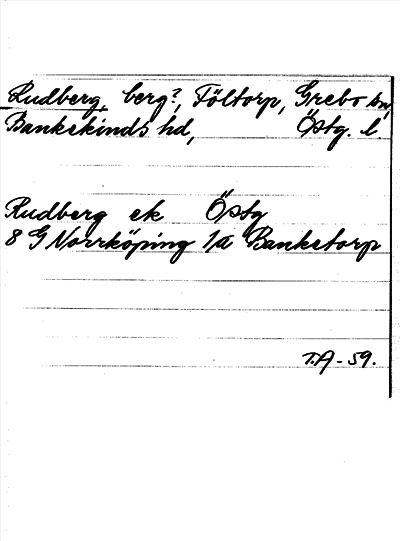 Rudberg, berg?, Föltorp, Grebo sn,
Bankekinds hd, Östg. l.
Rudberg ek Östg
8 G Norrköping 1/a Banketorp
T.A-59.